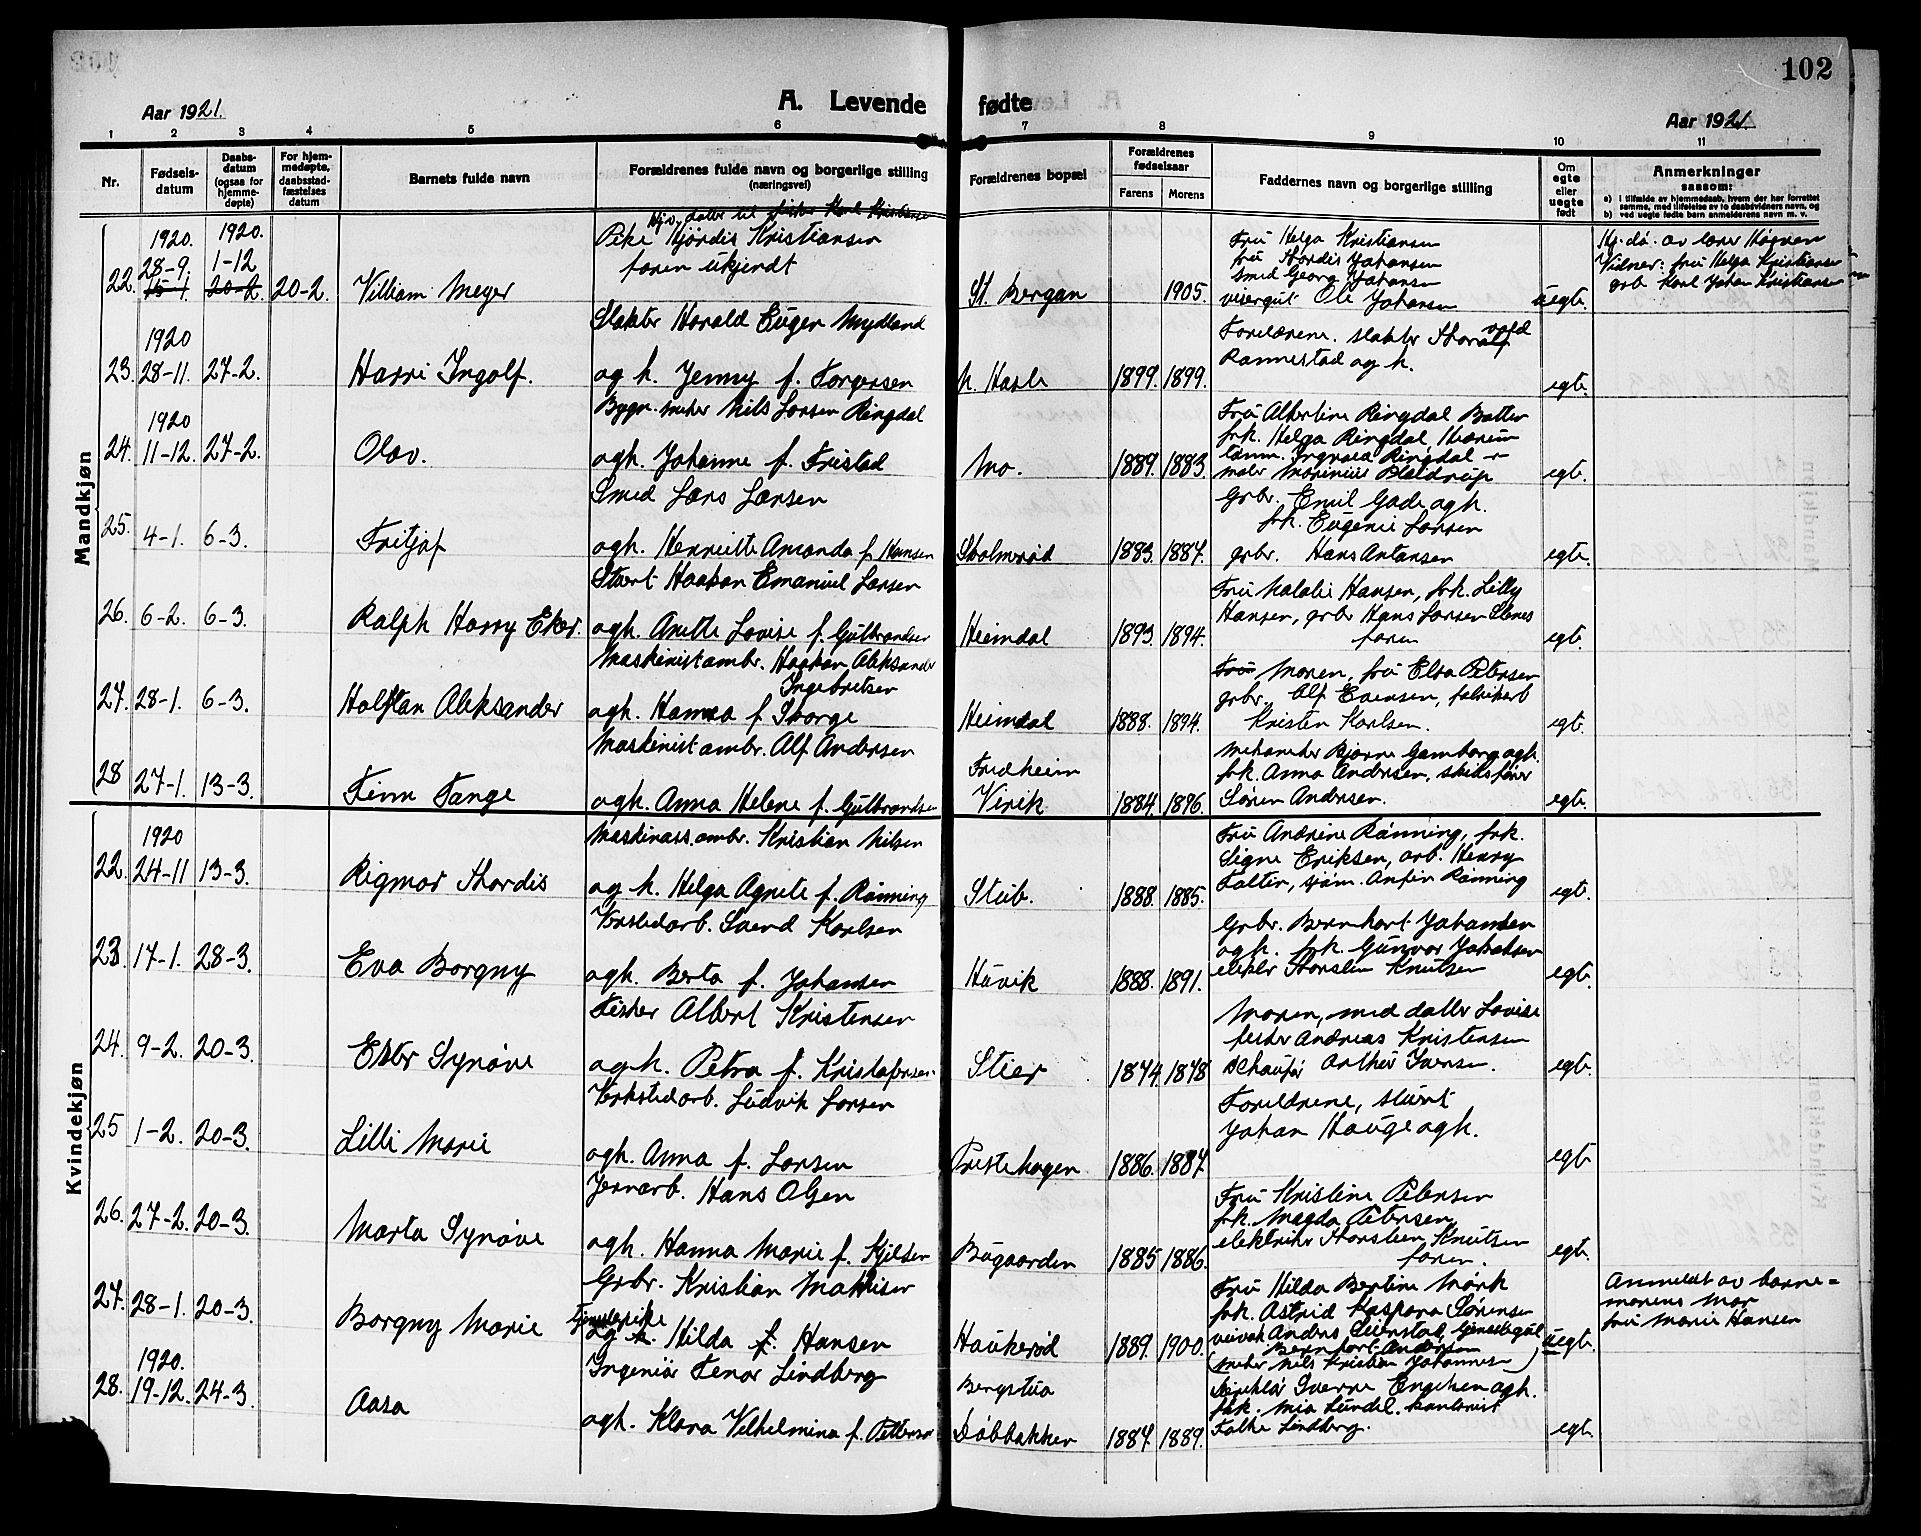 102
Aar 1921.
A. Levende fødte
Aar 1921.
1 2 3 4 5 6 7 8 9 10 11
Nr.
Fødselsdatum
Daabsdatum (ogsaa for hjemmedøpte)
For hjemmedøpte, daabsstadfæstelses datum
Barnets fulde navn
Forældrenes fulde navn og borgerlige stilling (næringsvei)
Forældrenes bopæl
Forældrenes fødselsaar
Farens
Morens
Faddernes navn og borgerlige stilling
Om egte eller uegte født
Anmerkninger
saasom:
a) i tilfælde av hjemmedaab, hvem der har forrettet samme, med tilføielse av to daabsvidners navn, og
b) ved uegte fødte barn anmelderens navn m. v.
Mandkjøn
22. 1920. 28-9. 15-1 1920. 1-12 20-2. 20-2. William Meyer
datter til fisker Karl Kristiansen
Pike Hjördis Kristiansen
faren ukjendt
St. Bergan 1905.
Fru Helga Kristiansen
fru Hordis Johansen
smed Georg Johansen
visergut Ole Johansen
uegte.
Hj. dø. av lærer
Vidner: fru Helga Kristiansen
grb Karl Johan Kristiansen
23. 1920 28-11. 27-2. Harri Ingolf.
Slakter Harald Eugen Mydland
og h. Jenny f. Torgersen
N. Hasle 1899. 1899.
Forældrene. slakter
Rannestad og h.
egte.
24. 1920 11-12. 27-2. Olav.
Bygn. Nils Larsen Ringdal
ogh. Johanne f. Fristad
Mo. 1889. 1883.
Fru Albertine Ringdal
frk. Helga Ringdal,
Ringdal
maler
egte.
25. 4-1. 6-3. Fritjof
Smed Lars Larsen
ogh. Henriette Amanda f. Hansen
1883. 1887.
Grbr. Emil Gade ogh.
frk. Eugenie Larsen
grbr. Hans Antansen
egte.
26. 6-2. 6-3. Ralph Harry Eker.
Stuert Haakon Emanuel Larsen
ogh. Anette Lovise f. Gulbrandsen
Heimdal 1893 1894.
Fru Natalie Hansen, frk. Lilly
Hansen, grbr Hans Larsen
faren
egte.
27. 28-1. 6-3. Halfdan Aleksander
Maskinistambr. Haakon Aleksander
Ingebretsen
ogh. Hanna f. Thorge
Heimdal 1888. 1894.
Fru Moren, fru Elsa Petersen
grbr. Alf Evensen, fabrikarb
Kristen Karlsen.
egte.
28 27-1. 13-3. Finn Tange
Maskinistambr. Alf Andersen
ogh. Anna Helene f. Gulbrandsen
Fredheim
Virik 1884. 1896.
Mekaniker Bjarne Gamborg ogh.
frk. Anna Andersen, skibsfører
Søren Andersen.
egte.
Kvindekjøn
22. 1920 24-11 13-3. Rigmor Thordis
Maskinass.ambr. Kristian Nilsen
og h. Helga Agnete f. Rønning
Stub. 1888. 1885.
Fru Andrine Rønning, frk.
Signe Eriksen, arb. Henry
Falter, sjøm. Anfin Rønning
egte.
23. 17-1. 28-3. Eva Borgny
Verkstedarb. Svend Karlsen
ogh. Berta f. Johansen
Huvik 1888. 1891.
Grbr. Bernhart Johansen
ogh. frk. Gunvor Jakobsen
elektr Thorsten Knutsen
egte.
24. 9-2. 20-3. Ester Synøve
Fisker Albert Kristensen
og h. Petra f. Kristofersen.
Stier 1874. 1878
Moren, med datter Lovise
fisker Andreas Kristensen
schaufør Arthur Iversen.
egte.
25 1-2. 20-3. Lilli Marie
Verkstedarb. Ludvik Larsen
ogh. Anna f. Larsen
Prestehagen 1886. 1887.
Forældrene, stuert
Johan Hauge ogh.
egte
26. 27-2. 20-3. Marta Synøve
Jernarb. Hans Olsen
ogh. Hanna Marie f. Kjilsen
Bøgaarden 1885 1886.
Fru Kristine Petersen
frk. Magda Petersen,
elektriker Thorstein Knutsen
faren.
egte.
27. 28-1. 20-3. Borgny Marie
Grbr. Kristian Mathisen
Tjenstepike
og h. Hilda f. Hansen
Haukerød 1889. 1900.
Fru Hilda Bertine Mørk
frk. Astrid Kaspara Sørensen
Anders
Bernhart Andersen
(Nils Kristian Johannesen)
uegte.
Anmeldt av barne=
morens mor
fru Marie Hansen
28. 1920. 19-12. 24-3. Aasa
Ingeniør Tenor Lindberg
ogh. Klara Vilhelmina f. Petterson
Bergstua
Døbbakken 1887. 1889.
Direktør Sverre Engelsen ogh.
frk. Mia Lundel. kontorist
Falke Lindberg.
egte.